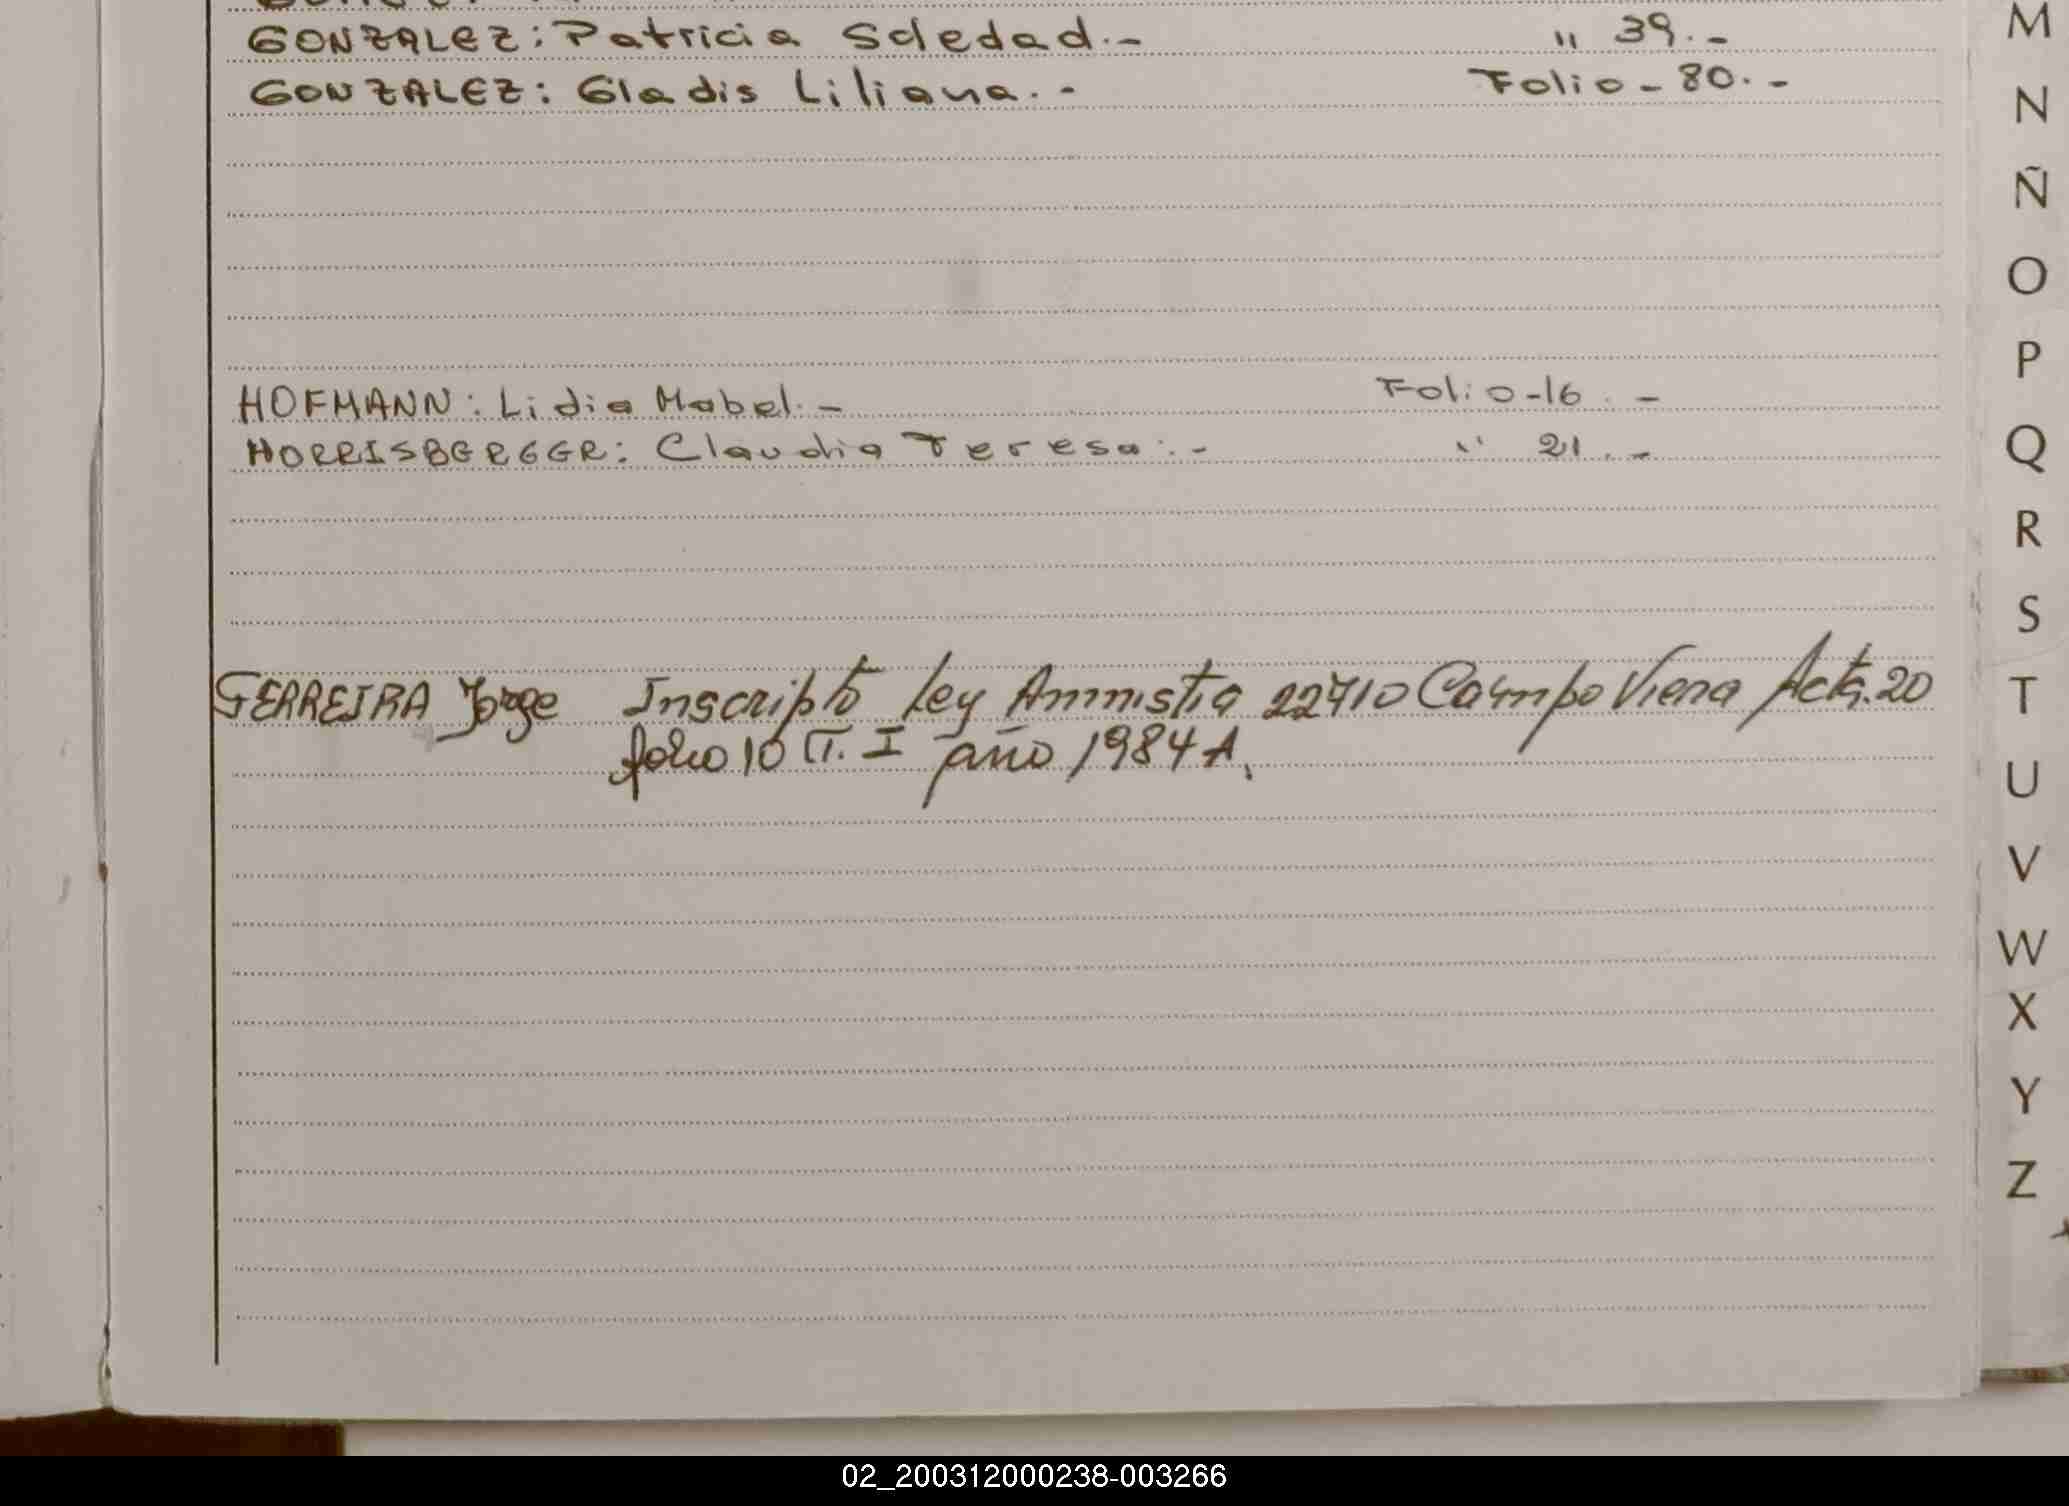 GONZALEZ: Patricia Soledad.- " 39.-
GONZALEZ: Gladis Liliana.- Folio-80.-
HOFMANN: Lidia Mabel.- Folio-16.-
HORRISBERGER: Claudia Teresa.- " 21.-
FERREIRA Jorge Inscripto ley Amnistia 22710 Campo Viera Acta.20
folio 10 T. I año 1984 A.
M
N
Ñ
O
P
Q
R
S
T
U
V
W
X
Y
Z
02_200312000238-003266